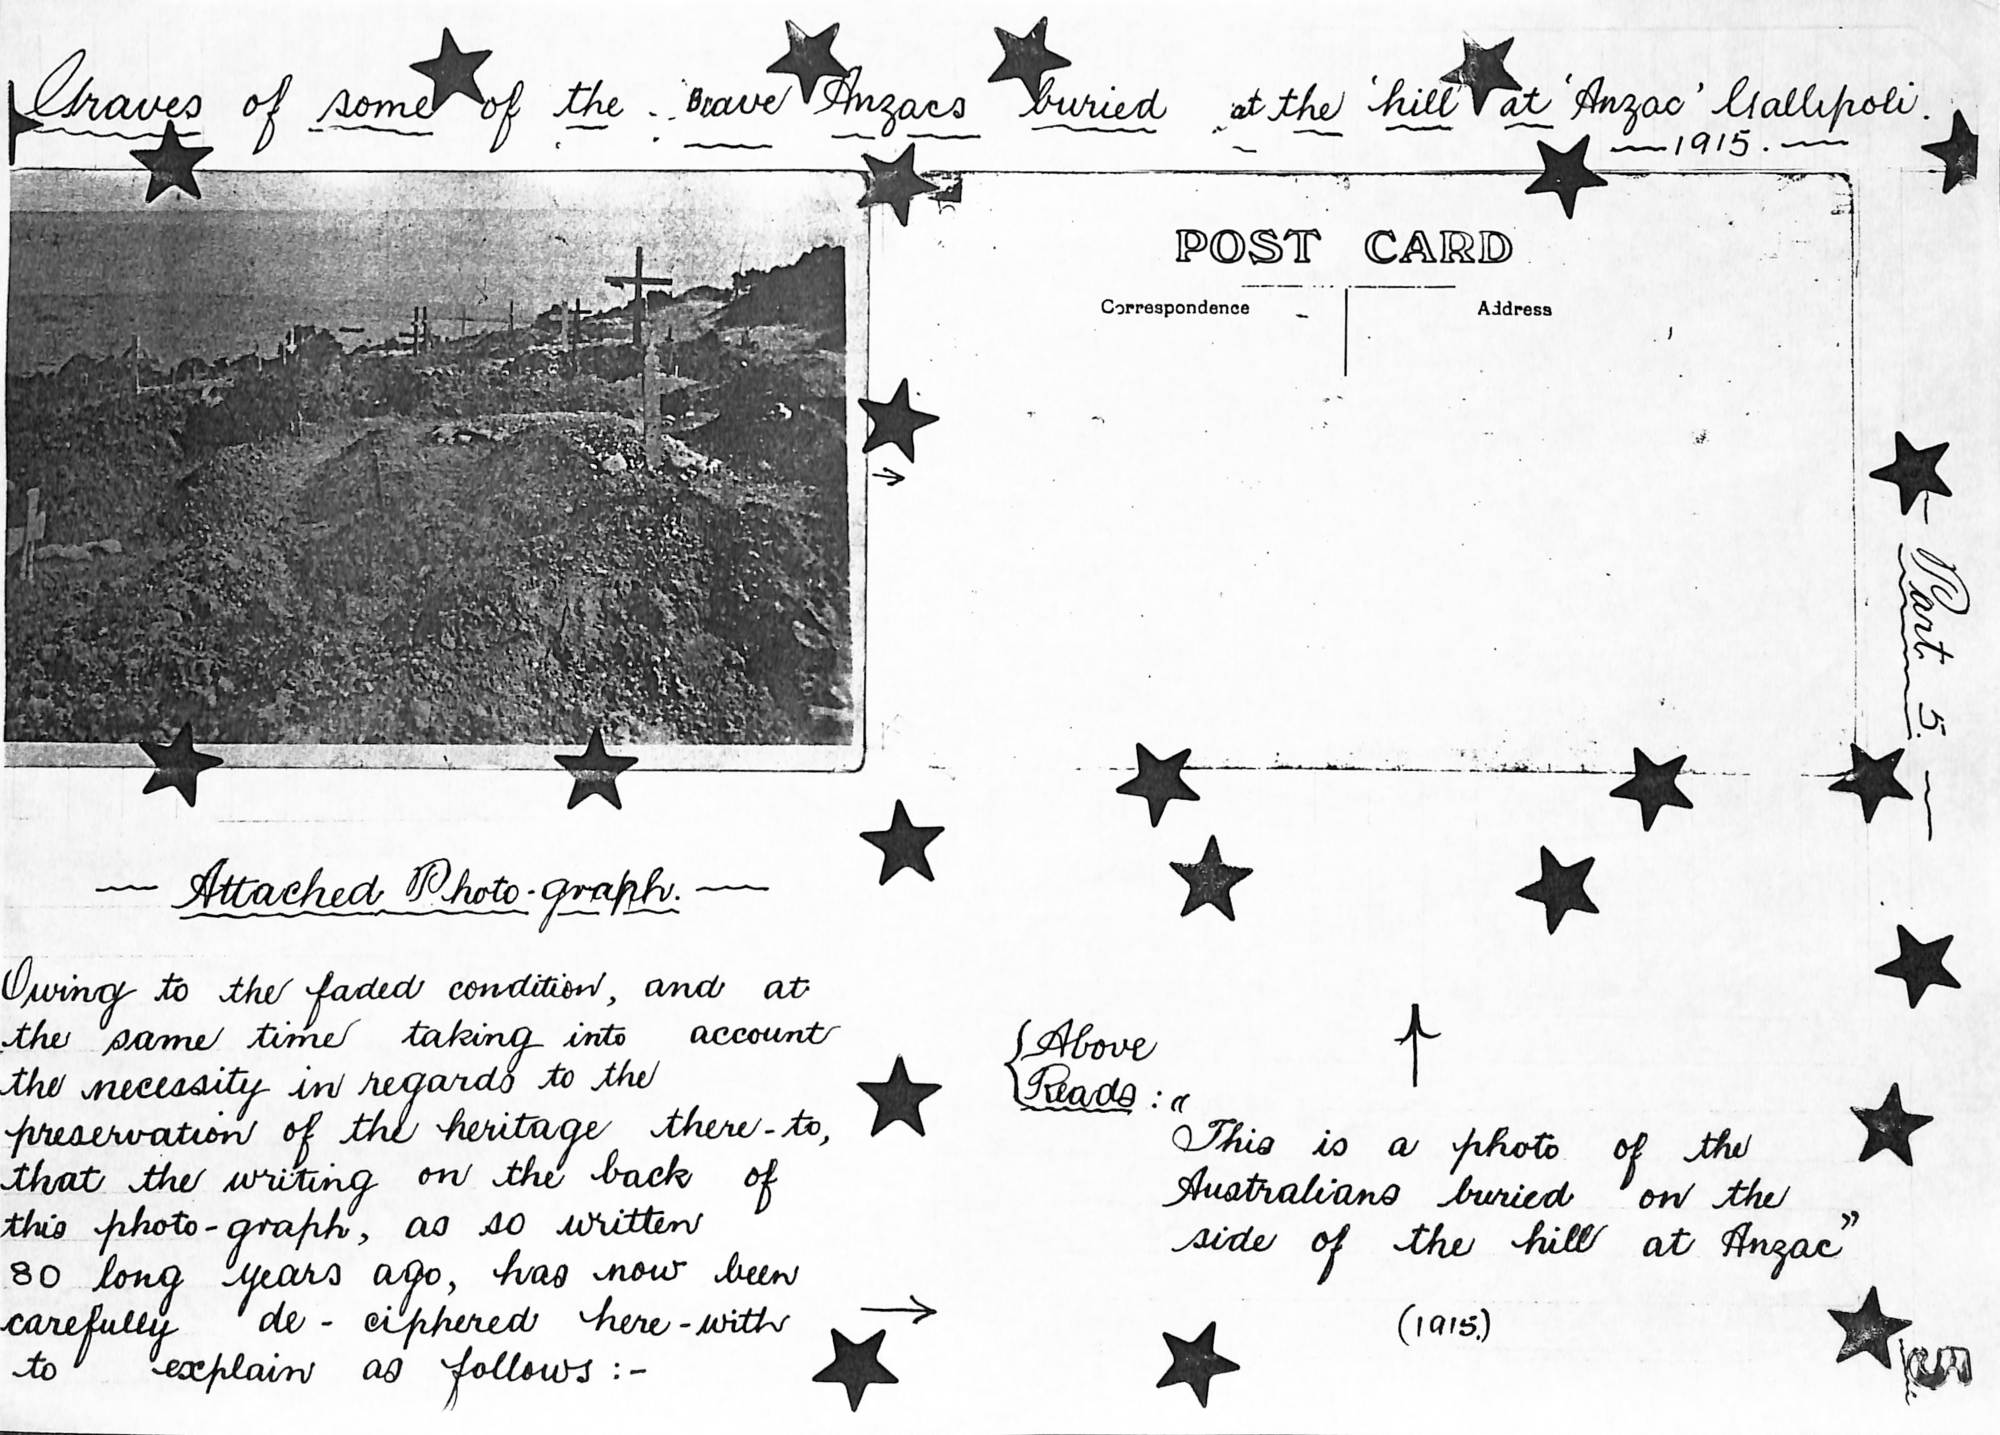 Graves of some of the Brave Anzacs buried at the 'hill' at 'Anzac' Gallipoli.
1915.
POST CARD
Correspondence
Address
Part 5.
Attached Photo-graph.
Owing to the faded condition, and at
the same time taking into account
the necessity in regards to the
preservation of the heritage there-to,
that the writing on the back of
this photo-graph, as so written
80 long years ago, has now been
carefully de-ciphered here-with
to explain as follows:-
Above
Reads: "
This is a photo of the
Australians buried on the
side of the hill at Anzac"
(1915.)
5